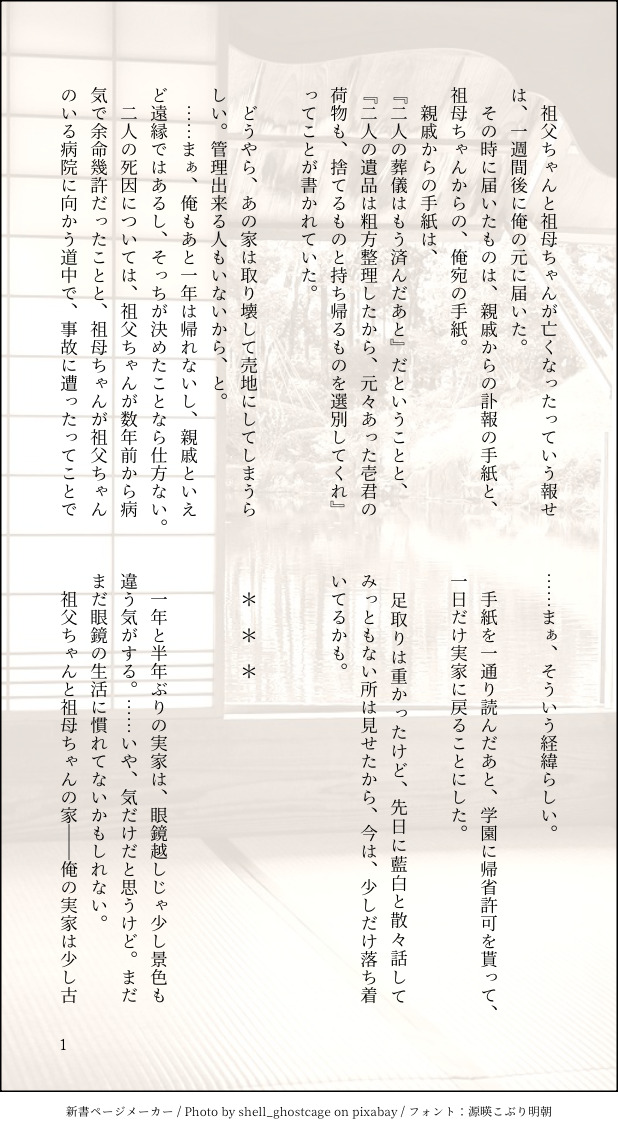 祖父ちゃんと祖母ちゃんが亡くなったっていう報せ
は、一週間後に俺の元に届いた。
　その時に届いたものは、親戚からの訃報の手紙と、
祖母ちゃんからの、俺宛の手紙。
　親戚からの手紙は、
『二人の葬儀はもう済んだあと』だということと、
『二人の遺品は粗方整理したから、元々あった壱君の
荷物も、捨てるものと持ち帰るものを選別してくれ』
ってことが書かれていた。
　どうやら、あの家は取り壊して売地にしてしまうら
しい。管理出来る人もいないから、と。
　……まぁ、俺もあと一年は帰れないし、親戚といえ
ど遠縁ではあるし、そっちが決めたことなら仕方ない。
　二人の死因については、祖父ちゃんが数年前から病
気で余命幾許だったことと、祖母ちゃんが祖父ちゃん
のいる病院に向かう道中で、事故に遭ったってことで
……まぁ、そういう経緯らしい。
　手紙を一通り読んだあと、学園に帰省許可を貰って、
一日だけ実家に戻ることにした。
　足取りは重かったけど、先日に藍白と散々話して
みっともない所は見せたから、今は、少しだけ落ち着
いてるかも。
＊＊＊
　一年と半年ぶりの実家は、眼鏡越しじゃ少し景色も
違う気がする。……いや、気だけだと思うけど。まだ
まだ眼鏡の生活に慣れてないかもしれない。
　祖父ちゃんと祖母ちゃんの家――俺の実家は少し古
1
新書ページメーカー / Photo by shell_ghostcage on pixabay / フォント：源暎こぶり明朝